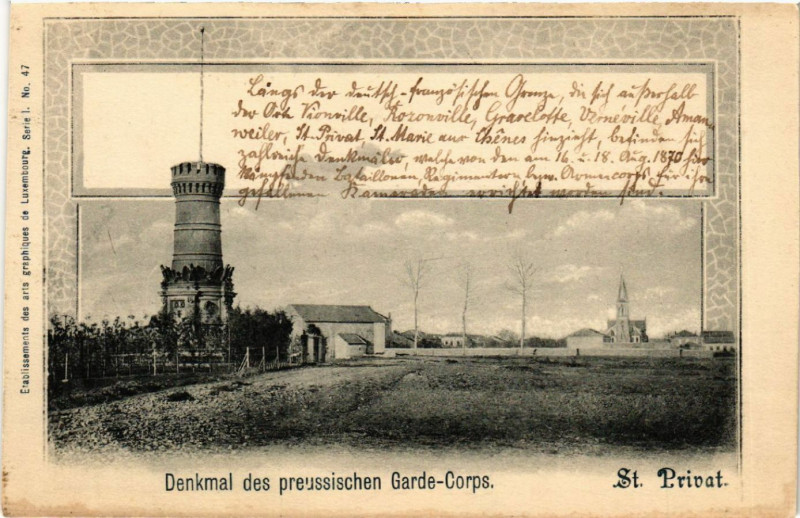 Längs der deutsch-französischen Grenze, die sich außerhalb
der Orte Vionville, Rezonville, Gravelotte, Vernéville, Aman-
weiler, St. Privat, St. Marie aux Chênes hinzieht, befinden sich
zahlreiche Denkmäler, welche von den am 16. u. 18. Aug. 1870 hier
kämpfenden Bataillonen, Regimentern bezw. Armeecorps für ihre
gefallenen Kameraden errichtet worden sind.
Etablissements des arts graphiques de Luxembourg. Serie I. No. 47
Denkmal des preussischen Garde-Corps.
St. Privat.